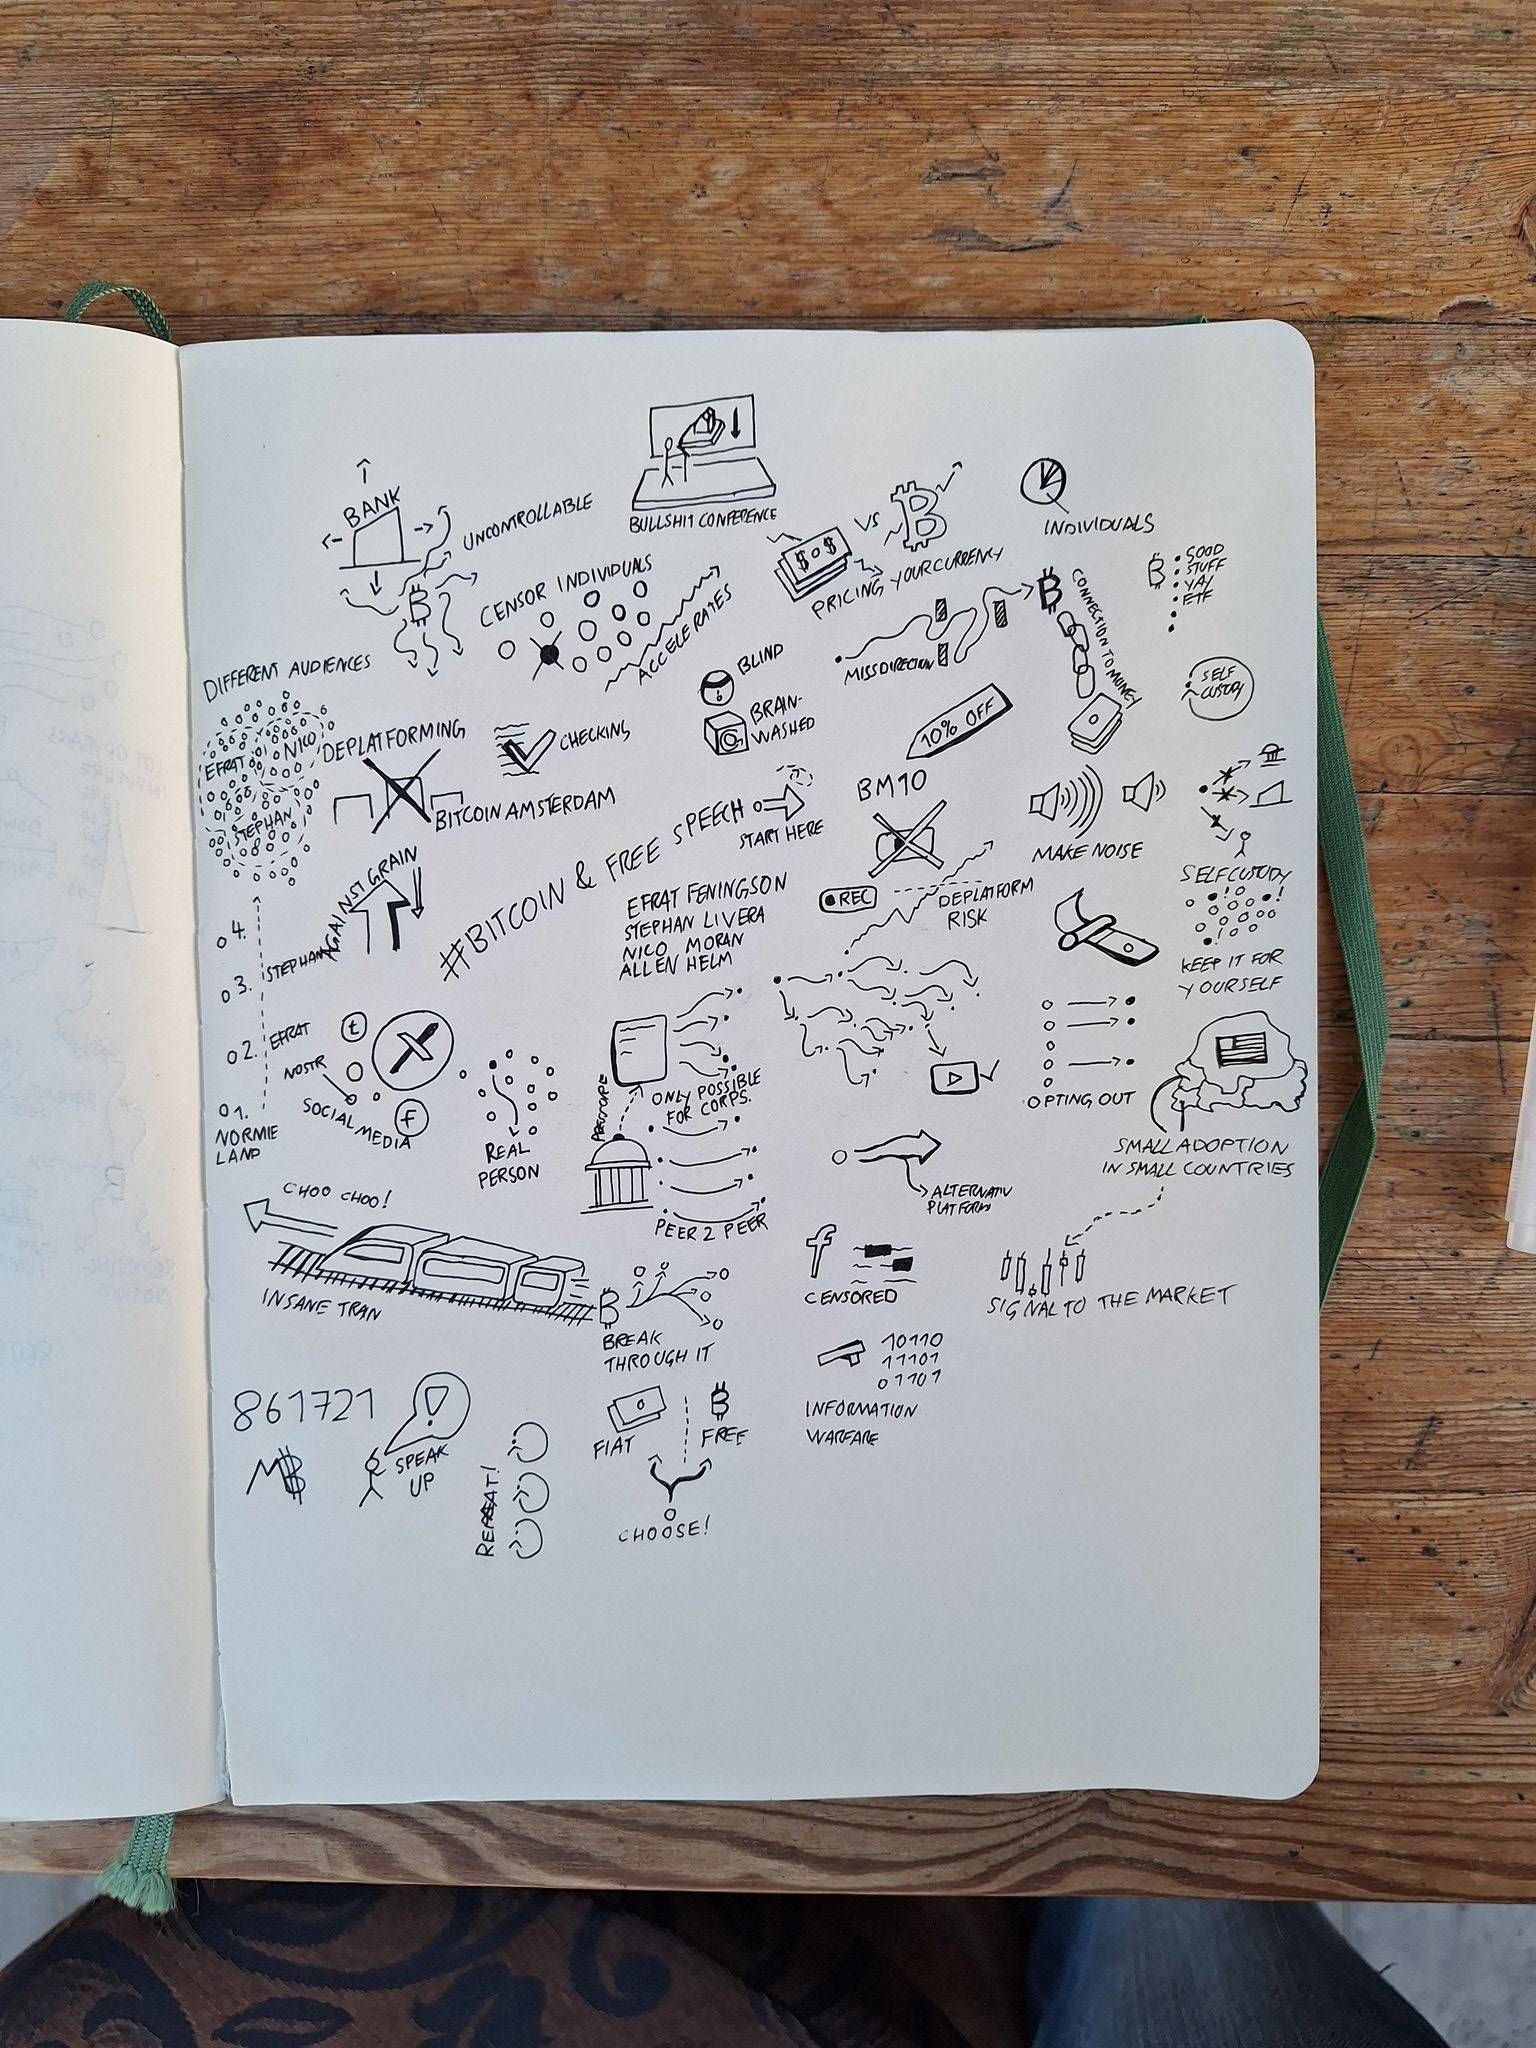 BULLSHIT CONFERENCE
BANK
UNCONTROLLABLE
VS
$ O $
PRICING YOUR CURRENCY
INDIVIDUALS
CENSOR INDIVIDUALS
ACCELERATES
GOOD
STUFF
YAY
ETF
CONNECTION TO MONEY
MISSDIRECTION
BLIND
BRAIN-
WASHED
SELF
CUSTODY
DIFFERENT AUDIENCES
EFRAT
NICO
STEPHAN
DEPLATFORMING
CHECKING
10% OFF
BITCOIN AMSTERDAM
#BITCOIN & FREE SPEECH
START HERE
BM10
MAKE NOISE
SELFCUSTODY
AGAINST GRAIN
EFRAT FENINGSON
STEPHAN LIVERA
NICO MORAN
ALLEN HELM
REC
DEPLATFORM
RISK
KEEP IT FOR
YOURSELF
4.
3. STEPHAN
2. EFRAT
1.
NORMIE
LAND
t
NOSTR
SOCIAL MEDIA
f
REAL
PERSON
ONLY POSSIBLE
FOR CORPS.
PEER 2 PEER
OPTING OUT
SMALL ADOPTION
IN SMALL COUNTRIES
ALTERNATIV
PLATFORM
CHOO CHOO!
INSANE TRAN
BREAK
THROUGH IT
f
CENSORED
SIGNAL TO THE MARKET
10110
11101
01101
INFORMATION
WARFARE
861721
!
SPEAK
UP
REPEAT!
FIAT
FREE
CHOOSE!